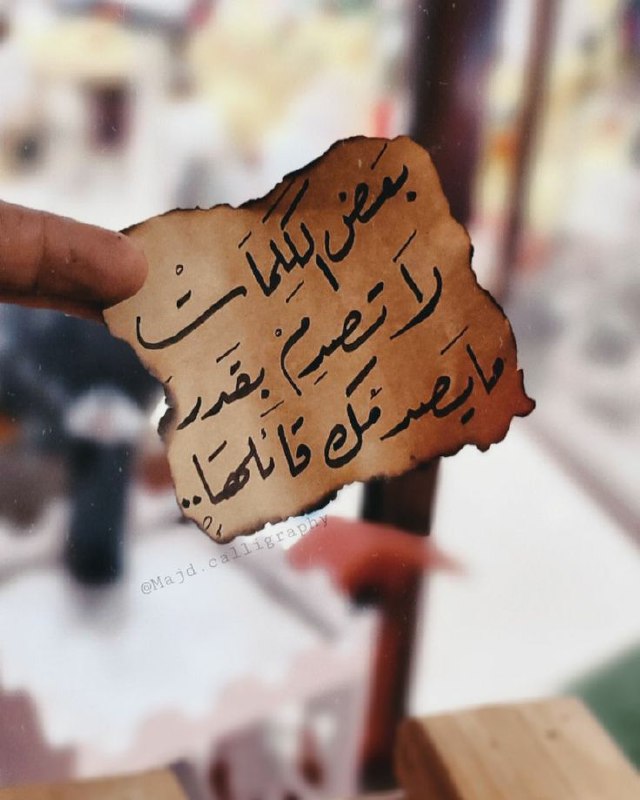 بعَض الكَلِمَاتْ
لَا تصدِمْ بِقَدَر
مايَصدمُك قائلهَا..
@Majd.calligraphy